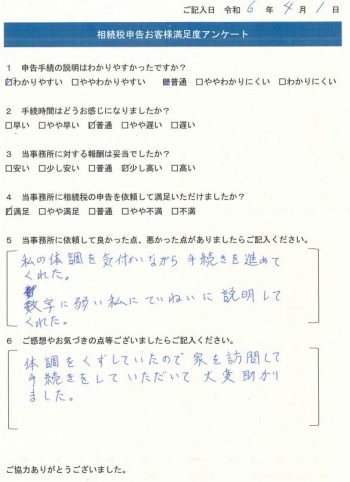 ご記入日 令和 6 年 4 月 1 日
相続税申告お客様満足度アンケート
1 申告手続の説明はわかりやすかったですか?
☑わかりやすい □ややわかりやすい ☑普通 □ややわかりにくい □わかりにくい
2 手続時間はどうお感じになりましたか?
□早い □やや早い ☑普通 □やや遅い □遅い
3 当事務所に対する報酬は妥当でしたか?
□安い □少し安い □普通 ☑少し高い □高い
4 当事務所に相続税の申告を依頼して満足いただけましたか?
☑満足 □やや満足 □普通 □やや不満 □不満
5 当事務所に依頼して良かった点、悪かった点がありましたらご記入ください。
私の体調を気付いながら手続きを進めて
くれた。
数字に弱い私にていねいに説明して
くれた。
6 ご感想やお気づきの点等ございましたらご記入ください。
体調をくずしていたので家を訪問して
手続きをしていただいて大変助かり
ました。
ご協力ありがとうございました。